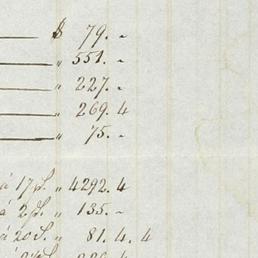 $ 79. "
" 551. "
" 227. "
" 269. 4
" 75. "
à 17 β. " 4292. 4
à 2 β. " 135. "
à 20 β. " 81. 4. 4